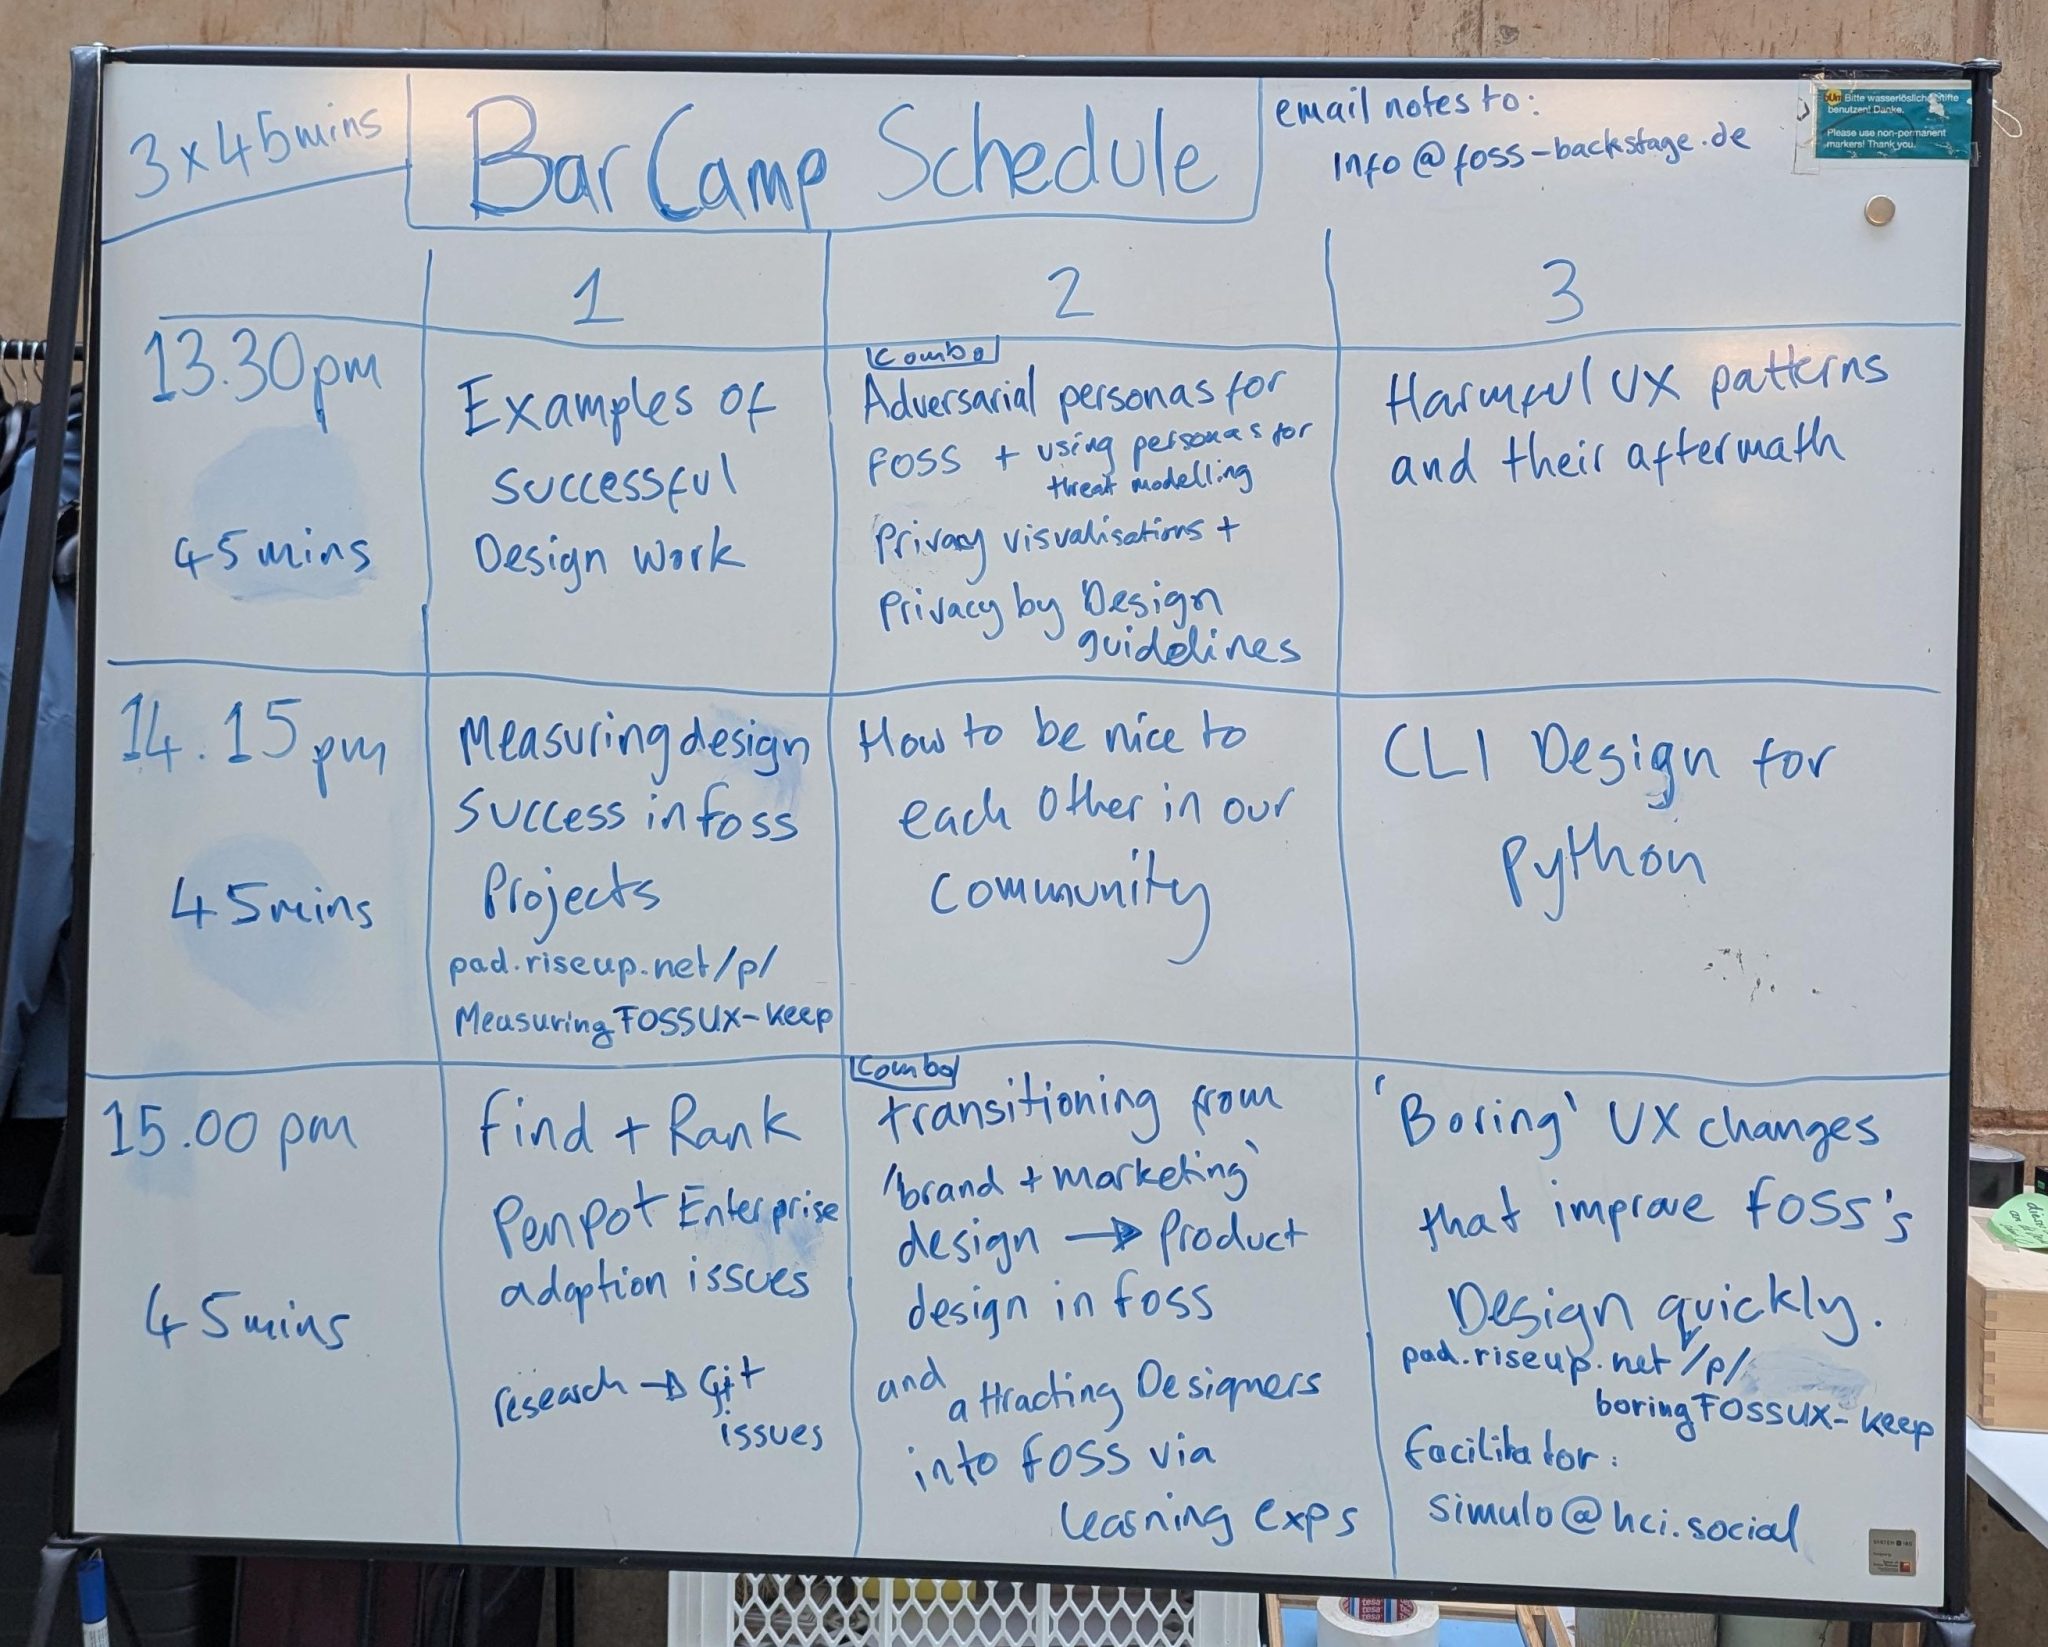 3 x 45 mins
BarCamp Schedule
email notes to:
info@foss-backstage.de
Bitte wasserlösliche Stifte
benutzen! Danke.
Please use non-permanent
markers! Thank you.
1
2
3
13.30pm
45 mins
Examples of
successful
Design work
Combo
Adversarial personas for
FOSS + using personas for
threat modelling
Privacy visualisations +
Privacy by Design
guidelines
Harmful UX patterns
and their aftermath
14.15pm
45 mins
Measuring design
success in foss
Projects
pad.riseup.net/p/
MeasuringFOSSUX-keep
How to be nice to
each other in our
community
CLI Design for
python
15.00 pm
45 mins
Find + Rank
Penpot Enterprise
adoption issues
research → Git
issues
Combo
transitioning from
'brand + marketing'
design → Product
design in foss
and attracting Designers
into foss via
learning exps
'Boring' UX changes
that improve FOSS's
Design quickly.
pad.riseup.net/p/
boringFOSSUX-keep
facilitator:
simulo@hci.social
tesa tesa
tesa tesa